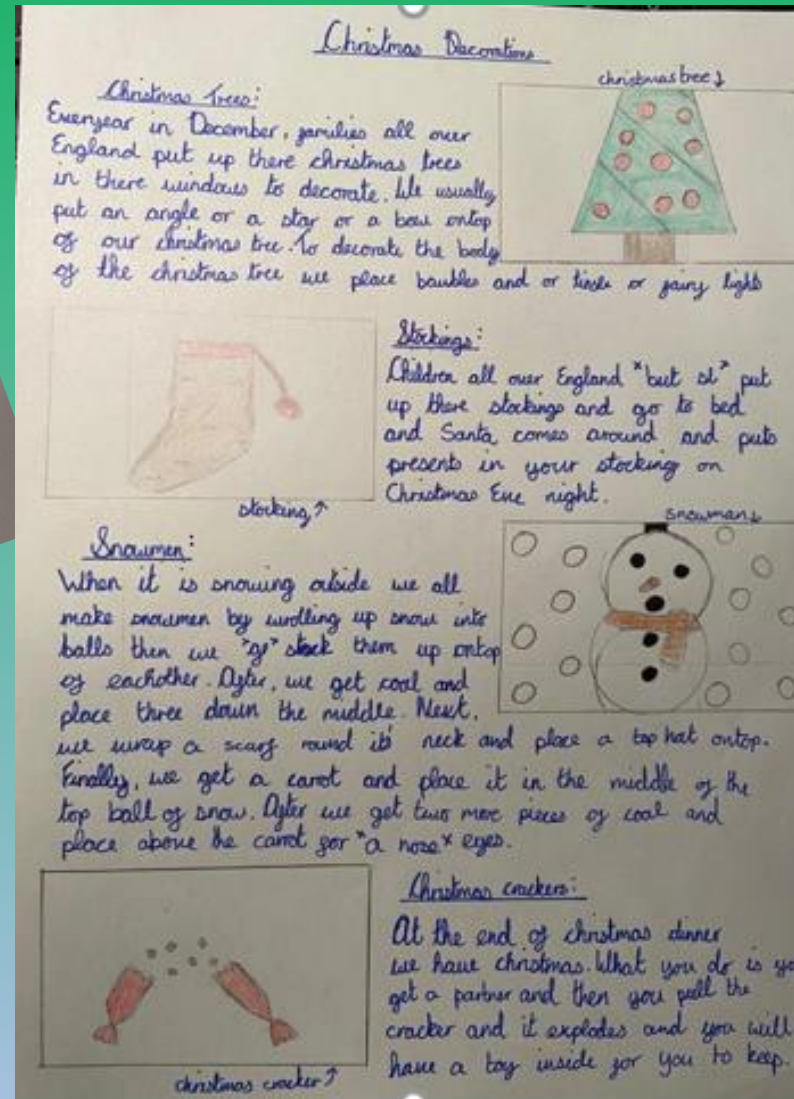 Christmas Decorations
Christmas Trees:
Everyyear in December, families all over
England put up there christmas trees
in there windows to decorate. We usually
put an angle or a star or a bow ontop
of our christmas tree. To decorate the body
of the christmas tree we place baubles and or tinsle or fairy lights
christmas tree↓
Stockings:
Children all over England *but st* put
up there stockings and go to bed
and Santa comes around and puts
presents in your stocking on
Christmas Eve night.
stocking↑
Snowmen:
When it is snowing outside we all
make snowmen by wrolling up snow into
balls then we stack them up ontop
of eachother. After, we get coal and
place three down the middle. Next,
we wrap a scarf round its neck and place a top hat ontop.
Finally, we get a carrot and place it in the middle of the
top ball of snow. After we get two more pieces of coal and
place above the carrot for *a nose* eyes.
snowman↓
Christmas crackers:
At the end of christmas dinner
we have christmas. What you do is yo
get a partner and then you pull the
cracker and it explodes and you will
have a toy inside for you to keep.
christmas cracker↑